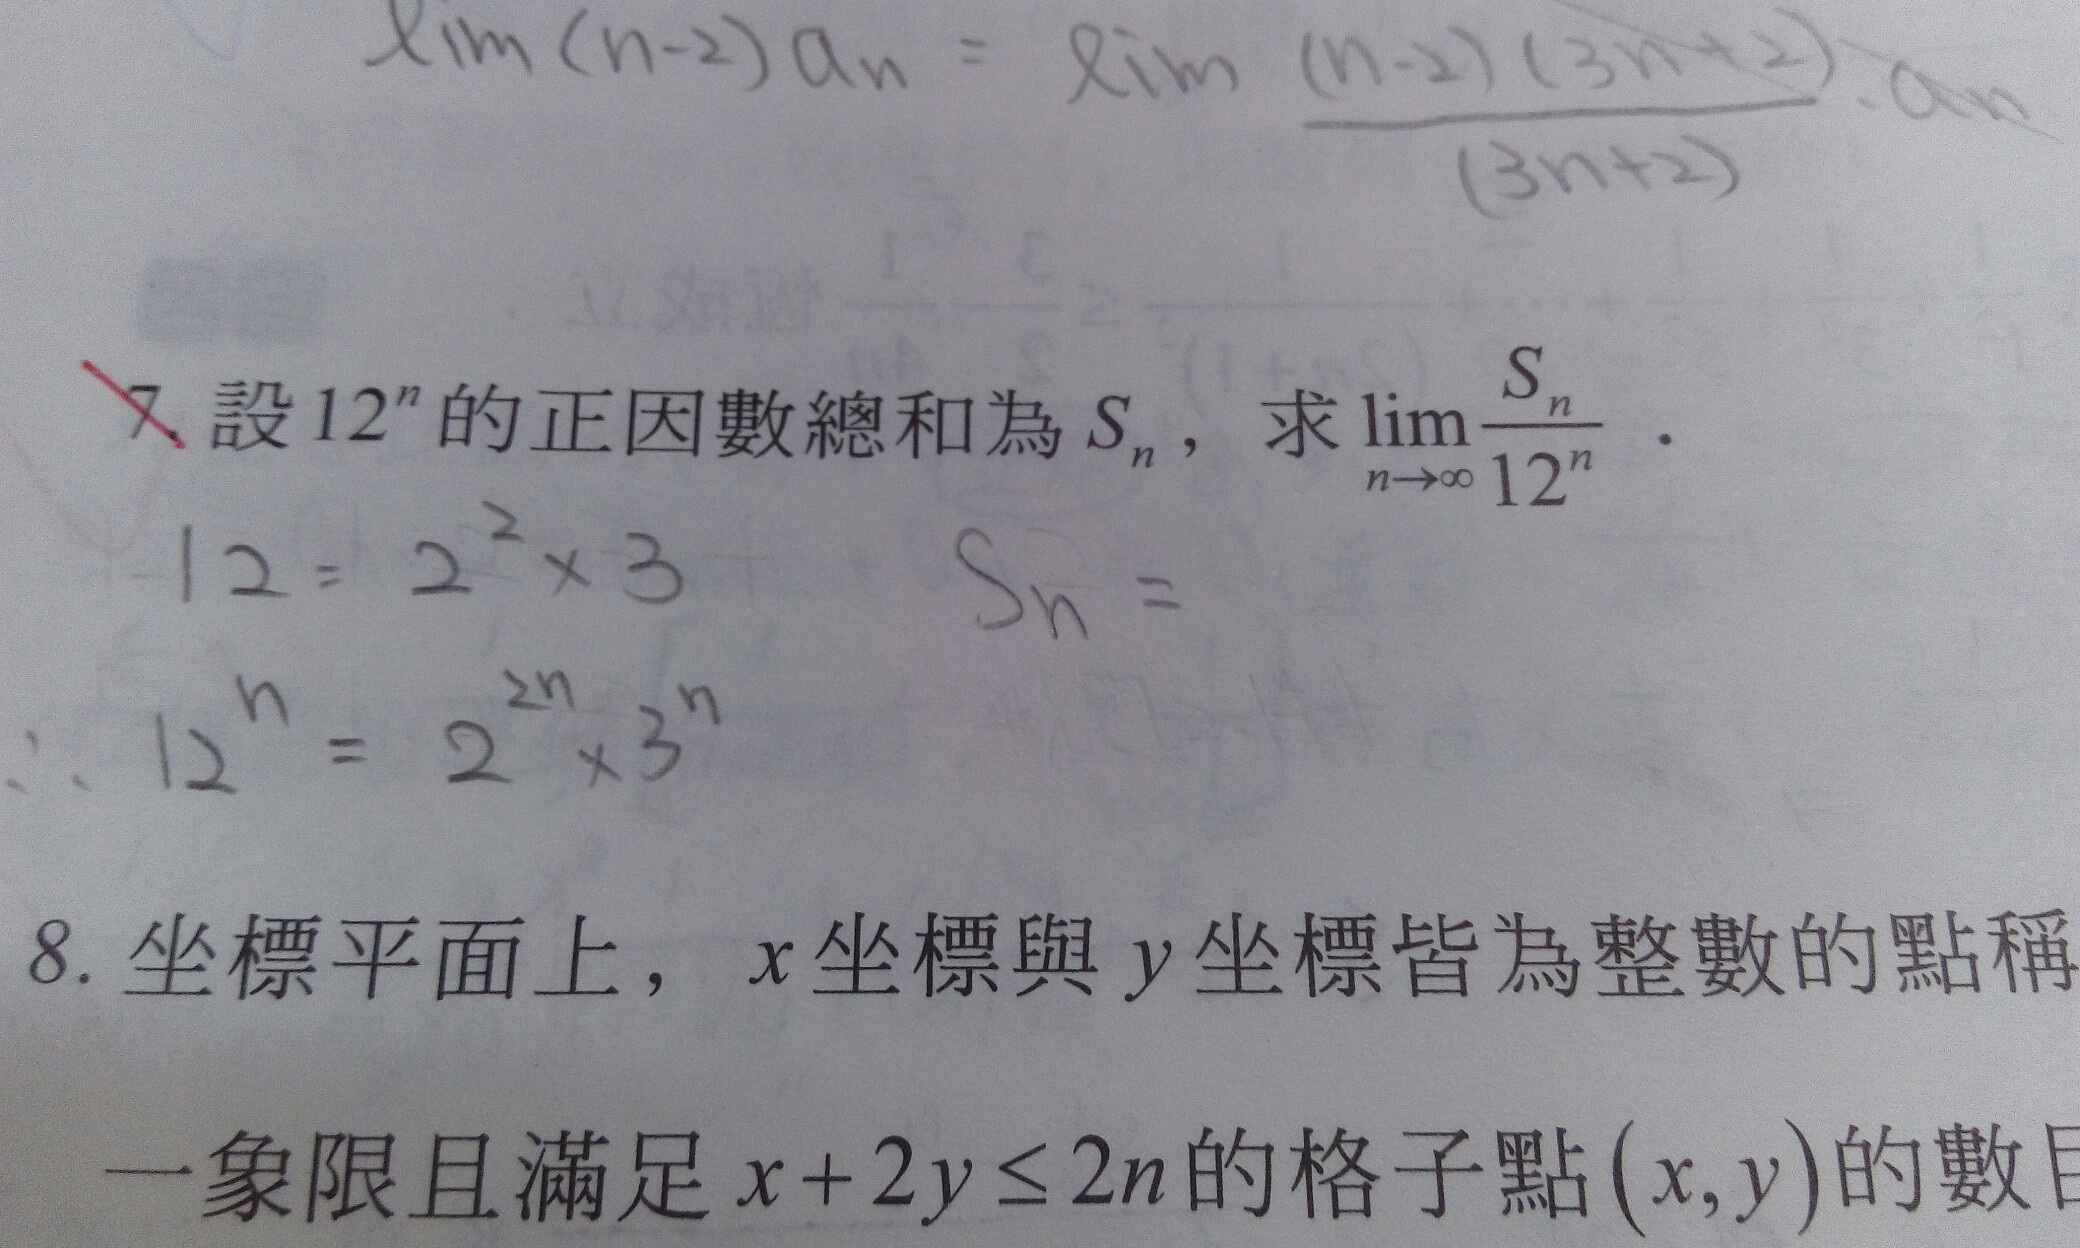 lim (n-2) an = lim (n-2)(3n+2)/(3n+2) · an
7. 設12ⁿ的正因數總和為Sₙ，求 lim n→∞ Sₙ/12ⁿ．
12 = 2² × 3 Sn =
∴ 12ⁿ = 2²ⁿ × 3ⁿ
8. 坐標平面上，x坐標與y坐標皆為整數的點稱
一象限且滿足x+2y≤2n的格子點(x,y)的數